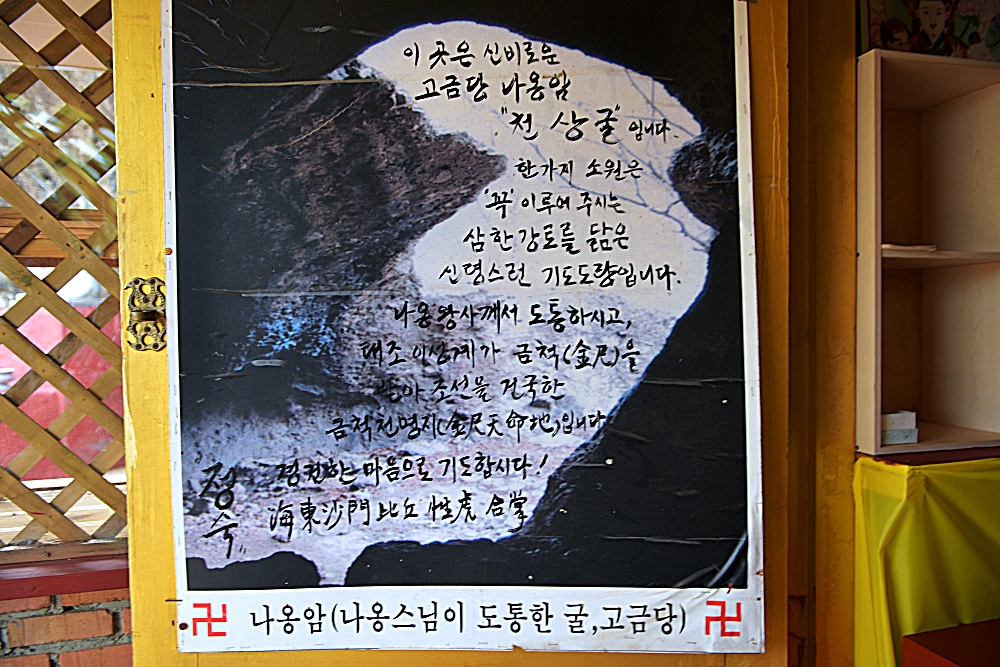 이 곳은 신비로운
고금당 나옹암
"천 상 굴" 입니다.
한가지 소원은
'꼭' 이루어 주시는
삼한강토를 닮은
신령스런 기도도량입니다.
나옹왕사께서 도통하시고,
태조 이성계가 금척(金尺)을
받아 조선을 건국한
금척천명지(金尺天命地)입니다
경건한 마음으로 기도합시다!
海東沙門 比丘 性虎 合掌
정숙
卍 나옹암(나옹스님이 도통한 굴,고금당) 卍